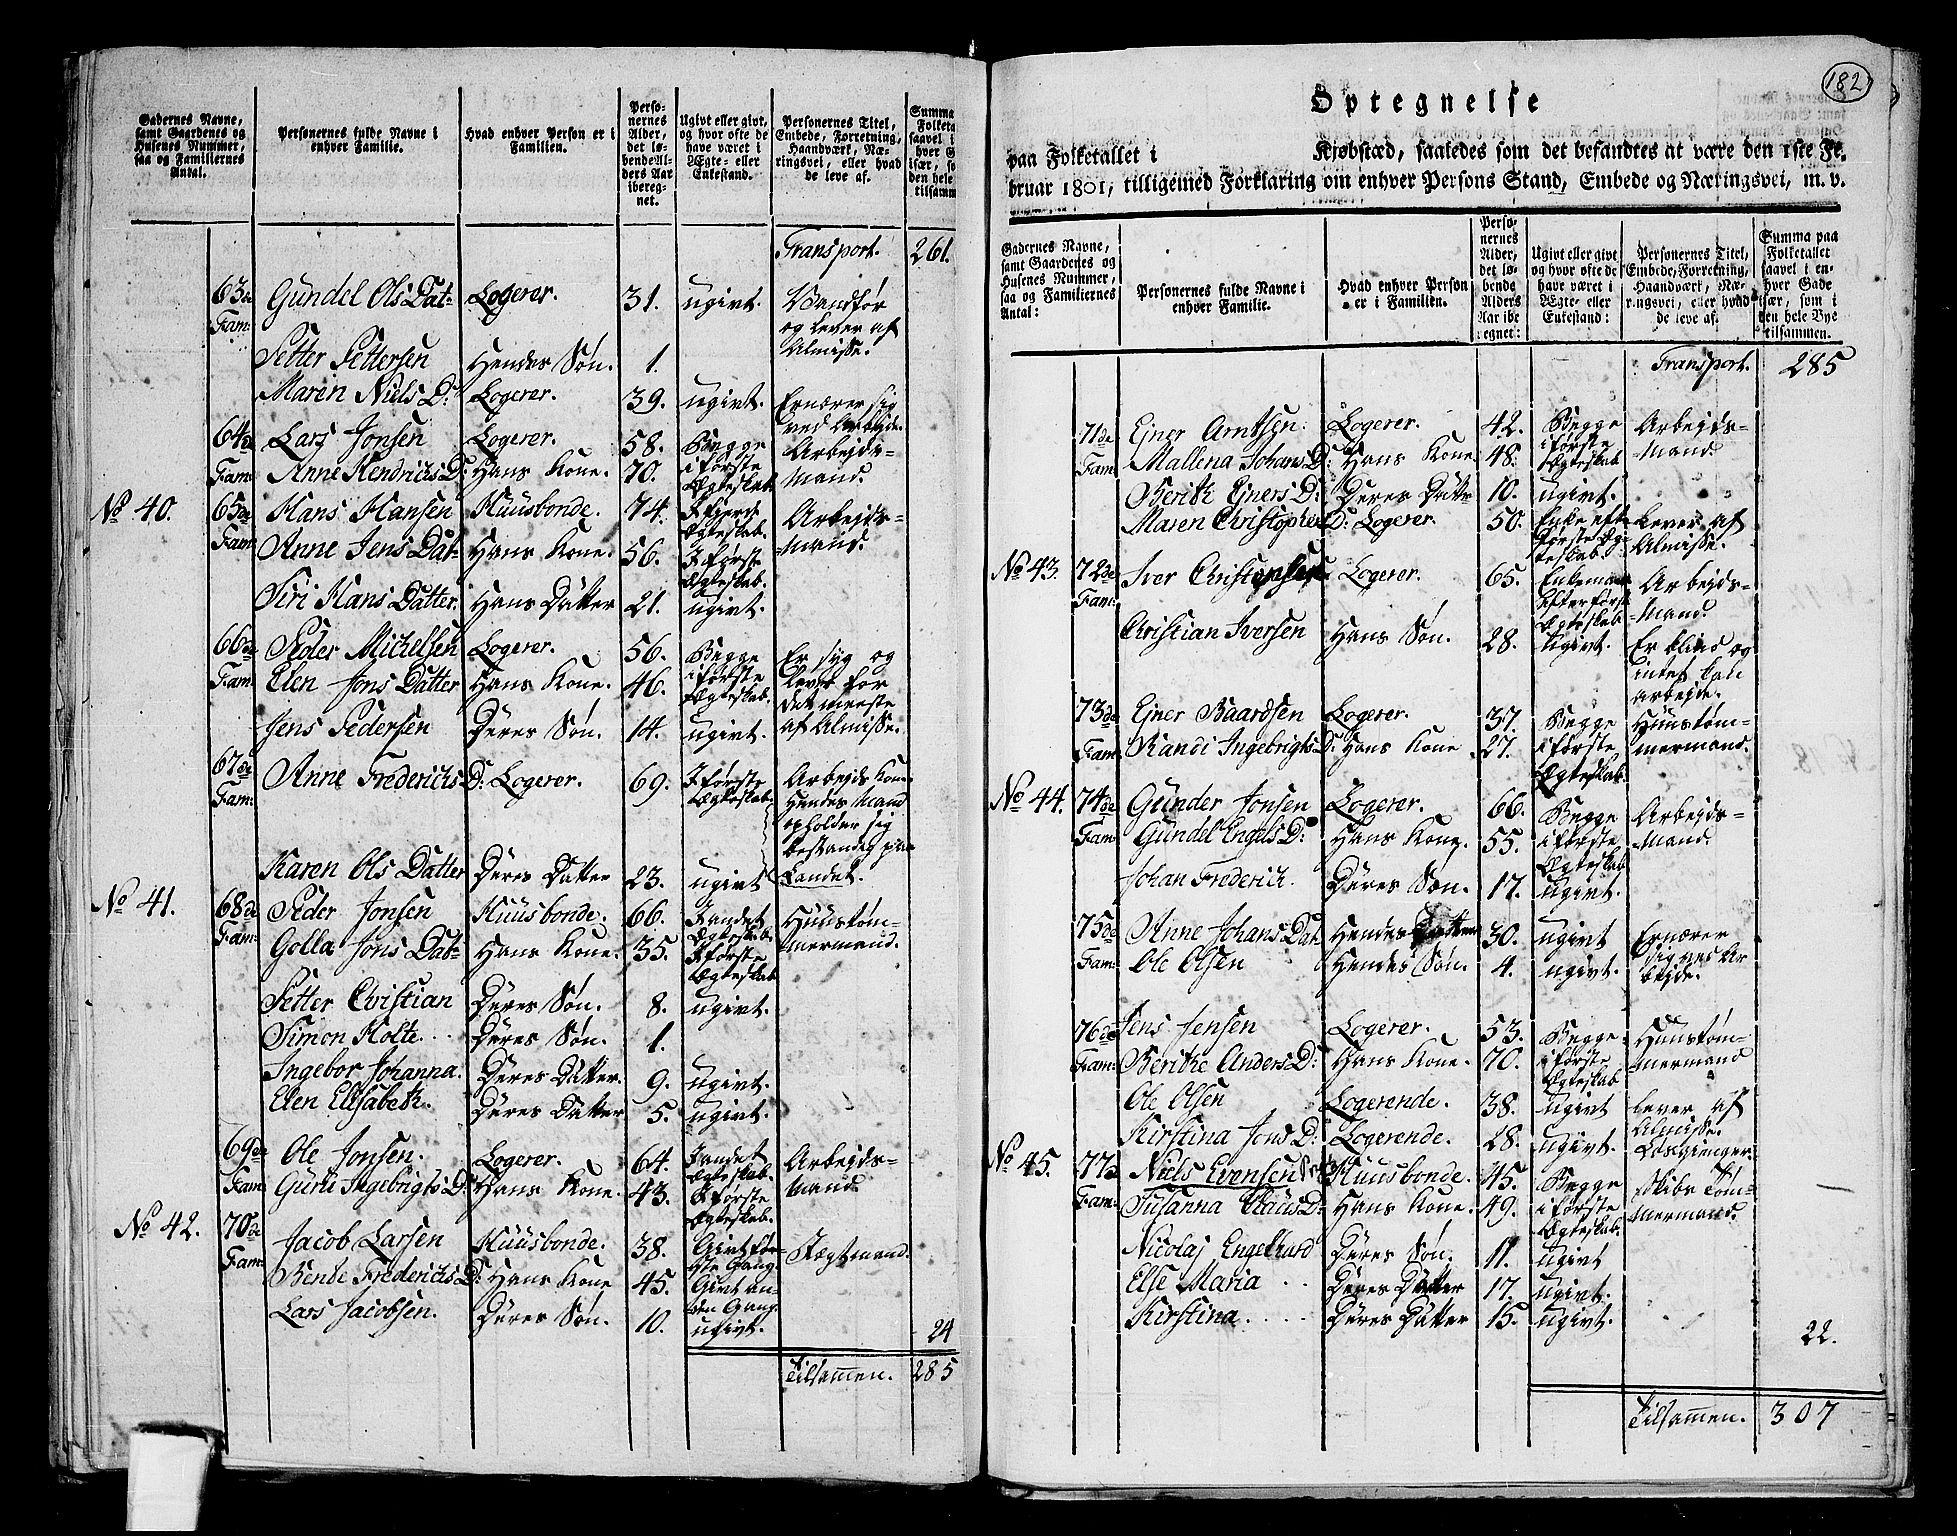 Gadernes Navne, samt Gaardenes og Husenes Nummer, saa og Familiernes Antal.
Personernes fulde Navne i enhver Familie.
Hvad enhver Person er i Familien.
Personernes Alder, det løbende Alders Aar iberegnet.
Ugivt eller givt, og hvor ofte de have været i Ægte- eller Enkestand.
Personernes Titel, Embede, Forretning, Haandværk, Næringsvei, eller hvad de leve af.
Summa Folketa saavel i hver G især, so den hele tilsamm
Transport. 261.
63de Fam: Gundel Ols Dat- Logerer. 31. ugivt. Vandfør og lever af Almisse.
Petter Pettersen Hendes Søn. 1.
Maren Niels D: Logerer. 39. ugivt. Ernærer sig ved Arbejde.
64de Fam: Lars Jonsen Logerer. 58. Begge i første Ægteskab Arbejds-mand.
Anne Hendrichs D: Hans Kone. 70.
No 40. 65de Fam: Hans Hansen Huusbonde. 74. I fjerde Ægteskab. Arbejds-mand.
Anne Jens Dat- Hans Kone. 56. I første Ægteskab.
Siri Hans Datter. Hans Datter 21. ugivt.
66de Fam: Peder Michelsen Logerer. 56. Begge i første Ægteskab. Er syg og lever for det meeste af Almisse.
Elen Jons Datter Hans Kone. 46.
Jens Pedersen Deres Søn. 14. ugivt.
67de Fam: Anne Frederichs D: Logerer. 69. I første Ægteskab. Arbejds Kone Hendes Mand opholder sig bestandig paa Landet.
Karen Ols Datter Deres Datter 23. ugivt
No 41. 68de Fam: Peder Jonsen Huusbonde. 66. I andet Ægteskab. Huustøm-mermand.
Golla Jons Dat- Hans Kone. 35. I første Ægteskab
Petter Christian Deres Søn. 8. ugivt.
Simon Holte. Deres Søn. 1.
Ingebor Johanna. Deres Datter. 9. ugivt.
Elen Elisabeth. Deres Datter 5. ugivt.
69de Fam: Ole Jonsen. Logerer. 64. I andet Ægteskab. Arbejds-mand
Guri Ingebrigts D: Hans Kone. 43. I første Ægteskab.
No 42. 70de Fam: Jacob Larsen Huusbonde. 38. Givt første Gang.
Bende Frederichs D: Hans Kone 45. Givt anden Gang.
Lars Jacobsen. Deres Søn. 10. ugivt.
24
Tilsammen. 285
182
Optegnelse
paa Folketallet i Kjøbstæd, saaledes som det befandtes at være den 1ste Fe-
bruar 1801, tilligemed Forklaring om enhver Persons Stand, Embede og Næringsvei, m. v.
Gadernes Navne, samt Gaardenes og Husenes Nummer, saa og Familiernes Antal:
Personernes fulde Navne i enhver Familie.
Hvad enhver Person er i Familien.
Personernes Alder, det løbende Alders Aar iberegnet:
Ugivt eller givt og hvor ofte de have været i Ægte- eller Enkestand:
Personernes Titel, Embede, Forretning, Haandværk, Næringsvei, eller hvad de leve af.
Summa paa Folketallet saavel i enhver Gade især, som i den hele Bye tilsammen.
Transport. 285
71de Fam: Ejner Arntsen: Logerer. 42. Begge i første Ægteskab Arbejds-mand.
Mallena Johans D: Hans Kone 48.
Berith Ejners D: Deres Datter 10. ugivt.
Maren Christophers D: Logerer. 50. Enke efter første Ægteskab. Lever af Almisse.
No 43. 72de Fam: Iver Christophersen Logerer. 65. Enkemand efter første Ægteskab Arbejds-mand.
Christian Iversen Hans Søn. 28. Ugivt. Er blind og intet kan arbejde.
73de Fam: Ejner Baardsen Logerer. 37. Begge i første Ægteskab. Huustøm-mermand.
Randi Ingebrigts D: Hans Kone 27.
No 44. 74de Fam: Gunder Jonsen Logerer. 66. Begge i første Ægteskab Arbejds-mand.
Gundel Engels D: Hans Kone. 55.
Johan Frederich. Deres Søn. 17. ugivt.
75de Fam: Anne Johans Dat. Hendes Datter 30. ugivt Ernærer sig ved Arbejde.
Ole Olsen Hendes Søn. 4. ugivt.
76de Fam: Jens Jensen Logerer. 53. Begge i første Ægteskab Huustøm-mermand
Berithe Anders D: Hans Kone. 70.
Ole Olsen Logerende. 38. ugivt Lever af Almisse.
Kirstina Jons D: Logerende. 28. ugivt. Løsgienger
No 45. 77de Fam: Niels Evensen Huusbonde. 45. Begge i første Ægteskab. Skibs Tøm-mermand.
Susanna Claus D: Hans Kone. 49.
Nicolaj Engelhard Deres Søn. 11. ugivt
Else Maria Deres Datter 17. ugivt.
Kirstina. Deres Datter 15. ugivt.
22.
Tilsammen. 307